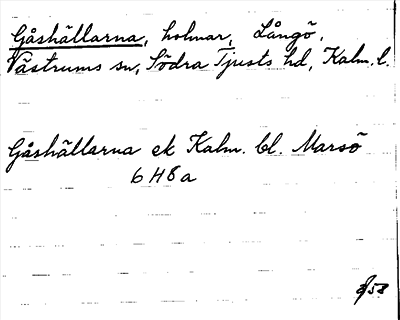 Gåshällarna, holmar, Långö,
Västrums sn, Södra Tjusts hd, Kalm. l.
Gåshällarna ek Kalm. bl. Marsö
6 H 8 a